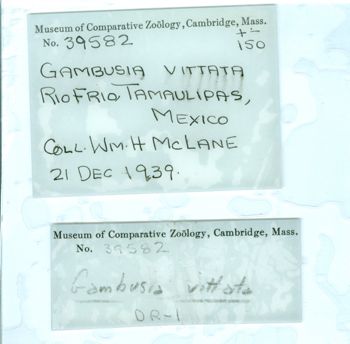 Museum of Comparative Zoölogy, Cambridge, Mass.
No. 39582 +-
150
GAMBUSIA VITTATA
RIO FRIO, TAMAULIPAS,
MEXICO
COLL. WM. H McLANE
21 DEC 1939.
Museum of Comparative Zoölogy, Cambridge, Mass.
No. 39582
Gambusia vittata
DR-1